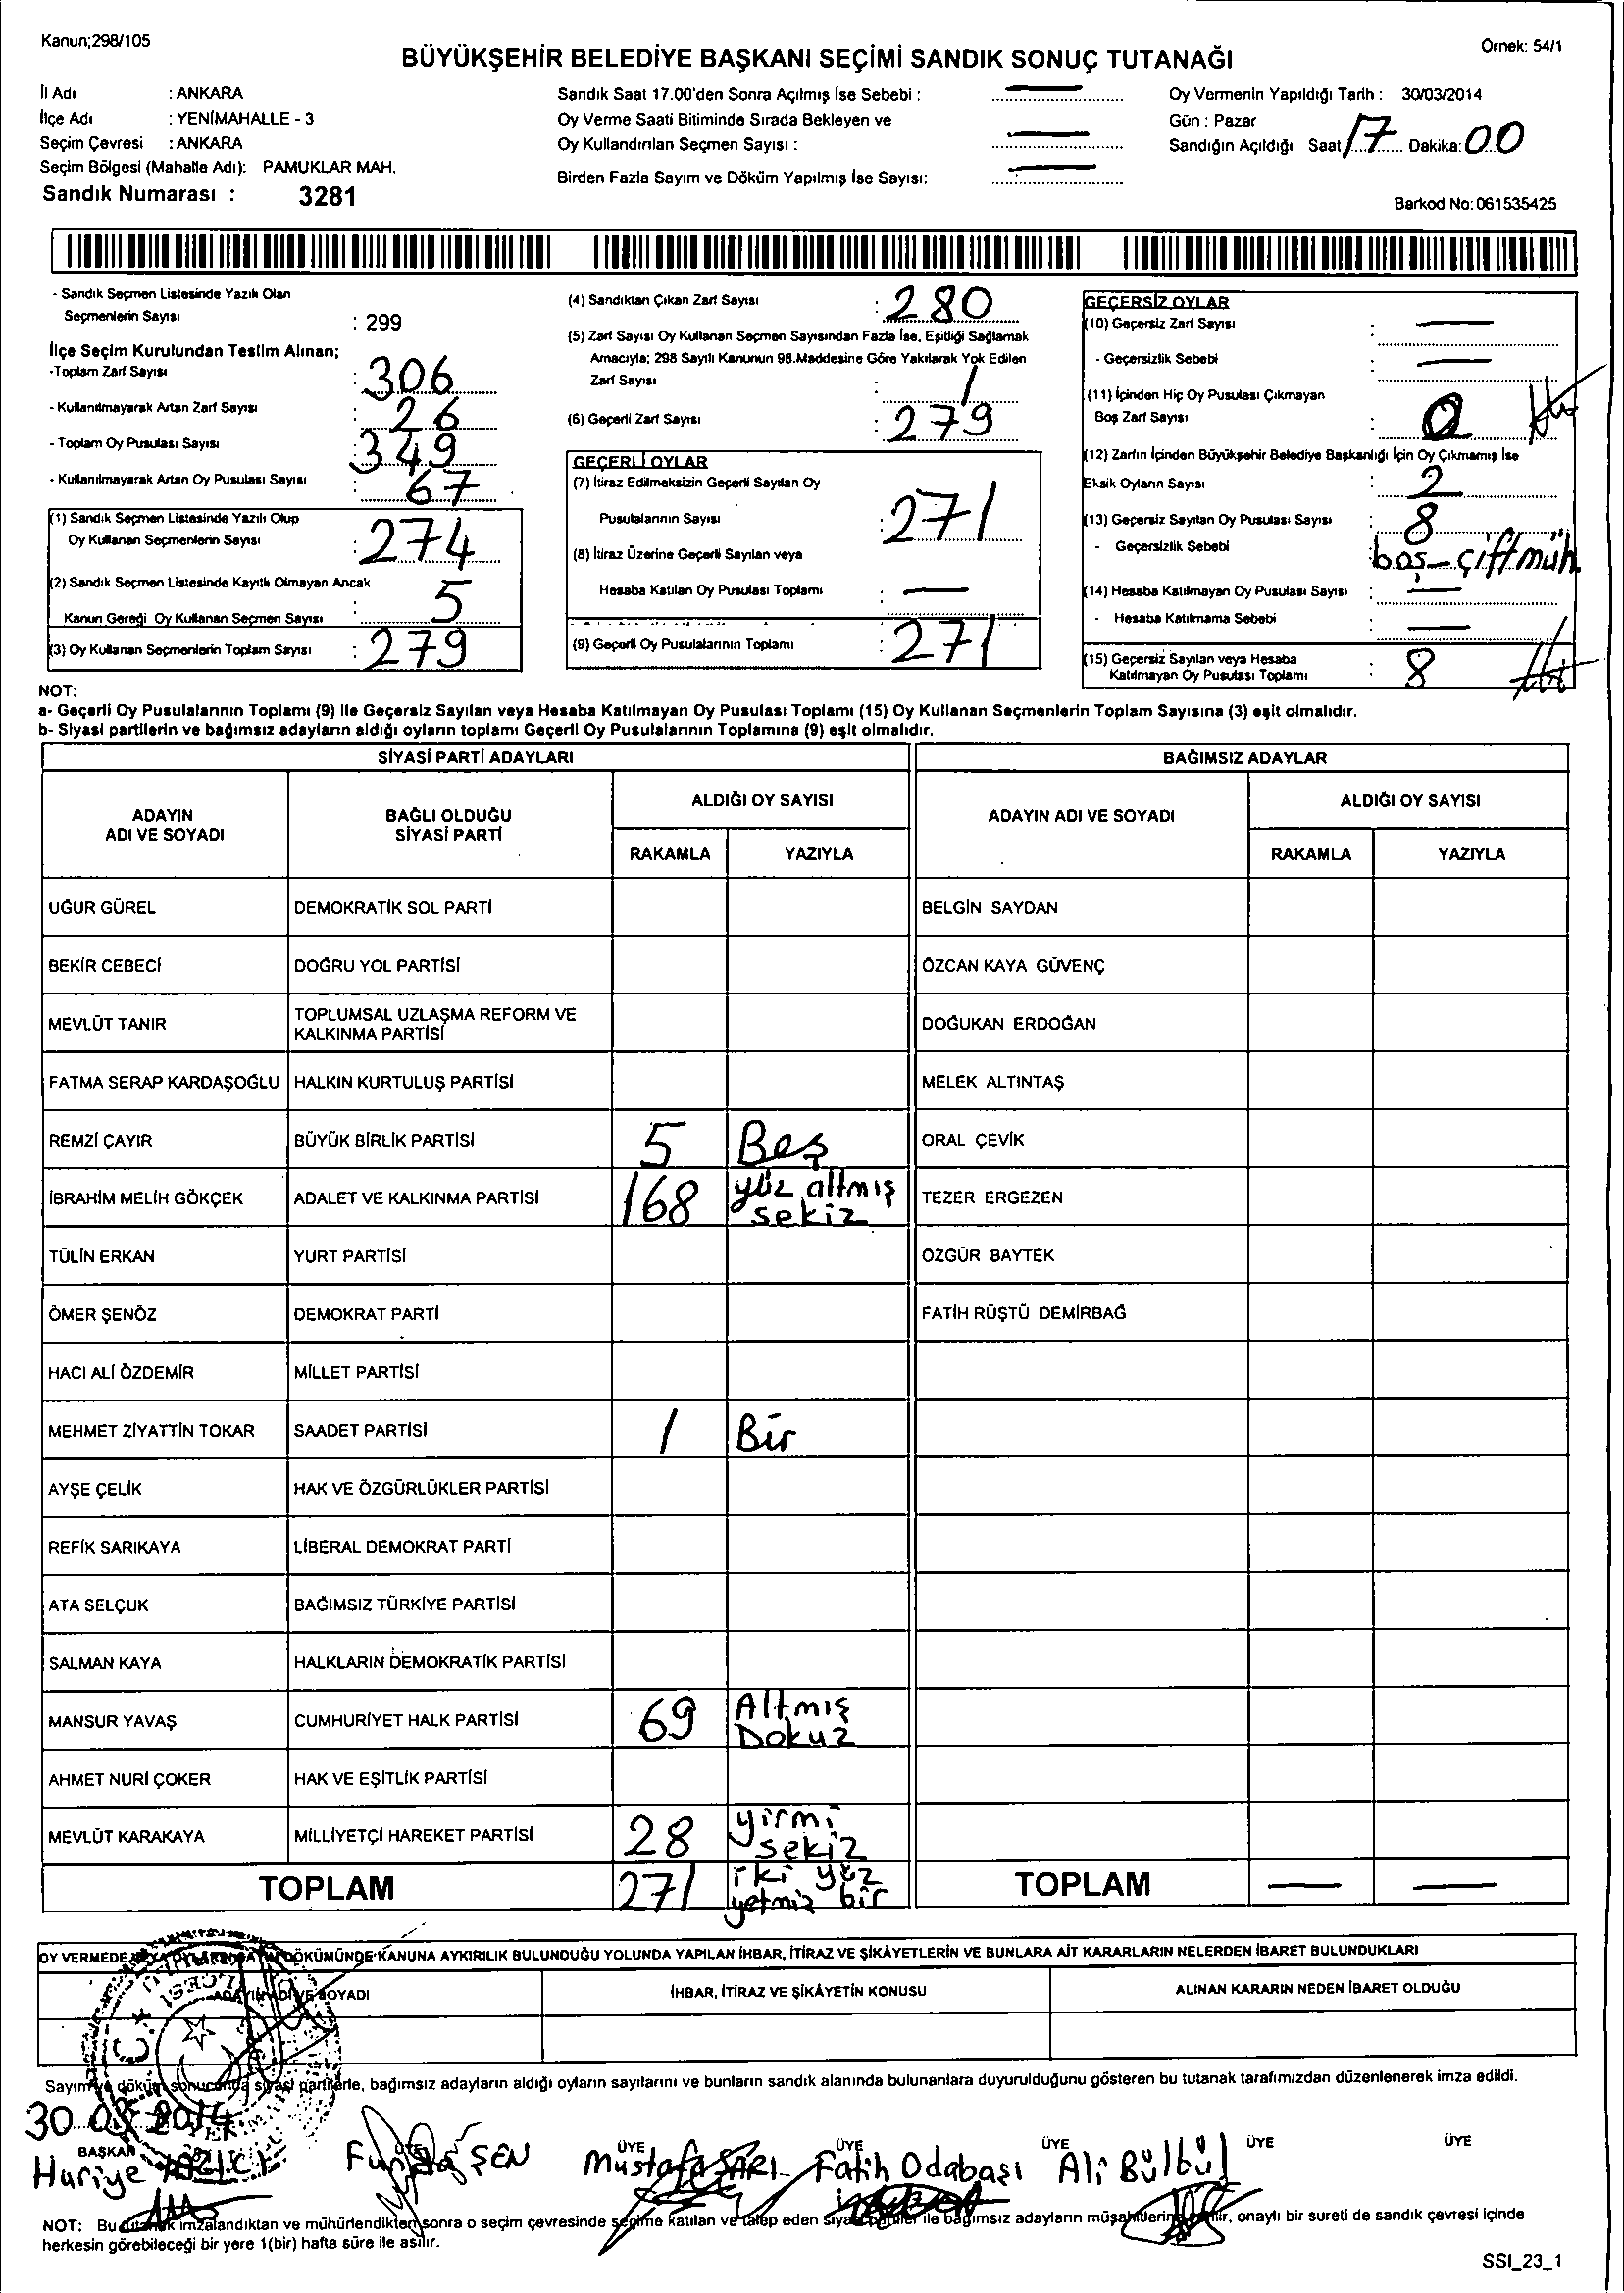 Kanun;298/105
Örnek: 54/1
BÜYÜKŞEHİR BELEDİYE BAŞKANI SEÇİMİ SANDIK SONUÇ TUTANAĞI
İl Adı : ANKARA
İlçe Adı : YENİMAHALLE - 3
Seçim Çevresi : ANKARA
Seçim Bölgesi (Mahalle Adı): PAMUKLAR MAH.
Sandık Numarası : 3281
Sandık Saat 17.00'den Sonra Açılmış İse Sebebi :
Oy Verme Saati Bitiminde Sırada Bekleyen ve
Oy Kullandırılan Seçmen Sayısı :
Birden Fazla Sayım ve Döküm Yapılmış İse Sayısı:
Oy Vermenin Yapıldığı Tarih : 30/03/2014
Gün : Pazar
Sandığın Açıldığı Saat 17 Dakika: 00
Barkod No: 061535425
- Sandık Seçmen Listesinde Yazılı Olan
Seçmenlerin Sayısı : 299
İlçe Seçim Kurulundan Teslim Alınan;
-Toplam Zarf Sayısı : 306
- Kullanılmayarak Artan Zarf Sayısı : 26
- Toplam Oy Pusulası Sayısı : 349
- Kullanılmayarak Artan Oy Pusulası Sayısı : 67
(1) Sandık Seçmen Listesinde Yazılı Olup
Oy Kullanan Seçmenlerin Sayısı : 274
(2) Sandık Seçmen Listesinde Kayıtlı Olmayan Ancak
Kanun Gereği Oy Kullanan Seçmen Sayısı : 5
(3) Oy Kullanan Seçmenlerin Toplam Sayısı : 279
(4) Sandıktan Çıkan Zarf Sayısı : 280
(5) Zarf Sayısı Oy Kullanan Seçmen Sayısından Fazla İse, Eşitliği Sağlamak
Amacıyla; 298 Sayılı Kanunun 98.Maddesine Göre Yakılarak Yok Edilen
Zarf Sayısı : 1
(6) Geçerli Zarf Sayısı : 279
GEÇERLİ OYLAR
(7) İtiraz Edilmeksizin Geçerli Sayılan Oy
Pusulalarının Sayısı : 271
(8) İtiraz Üzerine Geçerli Sayılan veya
Hesaba Katılan Oy Pusulası Toplamı : —
(9) Geçerli Oy Pusulalarının Toplamı : 271
GEÇERSİZ OYLAR
(10) Geçersiz Zarf Sayısı : —
- Geçersizlik Sebebi : —
(11) İçinden Hiç Oy Pusulası Çıkmayan
Boş Zarf Sayısı : 0
(12) Zarfın İçinden Büyükşehir Belediye Başkanlığı İçin Oy Çıkmamış İse
Eksik Oyların Sayısı : 2
(13) Geçersiz Sayılan Oy Pusulası Sayısı : 8
- Geçersizlik Sebebi : boş-çift müh.
(14) Hesaba Katılmayan Oy Pusulası Sayısı : —
- Hesaba Katılmama Sebebi : —
(15) Geçersiz Sayılan veya Hesaba
Katılmayan Oy Pusulası Toplamı : 8
NOT:
a- Geçerli Oy Pusulalarının Toplamı (9) ile Geçersiz Sayılan veya Hesaba Katılmayan Oy Pusulası Toplamı (15) Oy Kullanan Seçmenlerin Toplam Sayısına (3) eşit olmalıdır.
b- Siyasi partilerin ve bağımsız adayların aldığı oyların toplamı Geçerli Oy Pusulalarının Toplamına (9) eşit olmalıdır.
SİYASİ PARTİ ADAYLARI
BAĞIMSIZ ADAYLAR
ADAYIN ADI VE SOYADI
BAĞLI OLDUĞU SİYASİ PARTİ
ALDIĞI OY SAYISI
RAKAMLA YAZIYLA
ADAYIN ADI VE SOYADI
ALDIĞI OY SAYISI
RAKAMLA YAZIYLA
UĞUR GÜREL DEMOKRATİK SOL PARTİ BELGİN SAYDAN
BEKİR CEBECİ DOĞRU YOL PARTİSİ ÖZCAN KAYA GÜVENÇ
MEVLÜT TANIR TOPLUMSAL UZLAŞMA REFORM VE KALKINMA PARTİSİ DOĞUKAN ERDOĞAN
FATMA SERAP KARDAŞOĞLU HALKIN KURTULUŞ PARTİSİ MELEK ALTINTAŞ
REMZİ ÇAYIR BÜYÜK BİRLİK PARTİSİ 5 Beş ORAL ÇEVİK
İBRAHİM MELİH GÖKÇEK ADALET VE KALKINMA PARTİSİ 168 yüz altmış sekiz TEZER ERGEZEN
TÜLİN ERKAN YURT PARTİSİ ÖZGÜR BAYTEK
ÖMER ŞENÖZ DEMOKRAT PARTİ FATİH RÜŞTÜ DEMİRBAĞ
HACI ALİ ÖZDEMİR MİLLET PARTİSİ
MEHMET ZİYATTİN TOKAR SAADET PARTİSİ 1 Bir
AYŞE ÇELİK HAK VE ÖZGÜRLÜKLER PARTİSİ
REFİK SARIKAYA LİBERAL DEMOKRAT PARTİ
ATA SELÇUK BAĞIMSIZ TÜRKİYE PARTİSİ
SALMAN KAYA HALKLARIN DEMOKRATİK PARTİSİ
MANSUR YAVAŞ CUMHURİYET HALK PARTİSİ 69 Altmış Dokuz
AHMET NURİ ÇOKER HAK VE EŞİTLİK PARTİSİ
MEVLÜT KARAKAYA MİLLİYETÇİ HAREKET PARTİSİ 28 yirmi sekiz
TOPLAM 271 iki yüz yetmiş bir TOPLAM — —
OY VERMEDE DÖKÜMÜNDE KANUNA AYKIRILIK BULUNDUĞU YOLUNDA YAPILAN İHBAR, İTİRAZ VE ŞİKÂYETLERİN VE BUNLARA AİT KARARLARIN NELERDEN İBARET BULUNDUKLARI
ADAYIN ADI VE SOYADI İHBAR, İTİRAZ VE ŞİKÂYETİN KONUSU ALINAN KARARIN NEDEN İBARET OLDUĞU
Sayım ve döküm sonucunda siyasi partilerle, bağımsız adayların aldığı oyların sayılarını ve bunların sandık alanında bulunanlara duyurulduğunu gösteren bu tutanak tarafımızdan düzenlenerek imza edildi.
30 03 2014
BAŞKAN ÜYE ÜYE ÜYE ÜYE ÜYE ÜYE
Huriye ŞEN Mustafa SARI Fatih Odabaşı Ali Bülbül
NOT: Bu tutanak imzalandıktan ve mühürlendikten sonra o seçim çevresinde seçime katılan ve talep eden siyasi partiler ile bağımsız adayların müşahitlerine verilir, onaylı bir sureti de sandık çevresi içinde
herkesin görebileceği bir yere 1(bir) hafta süre ile asılır.
SSI_23_1